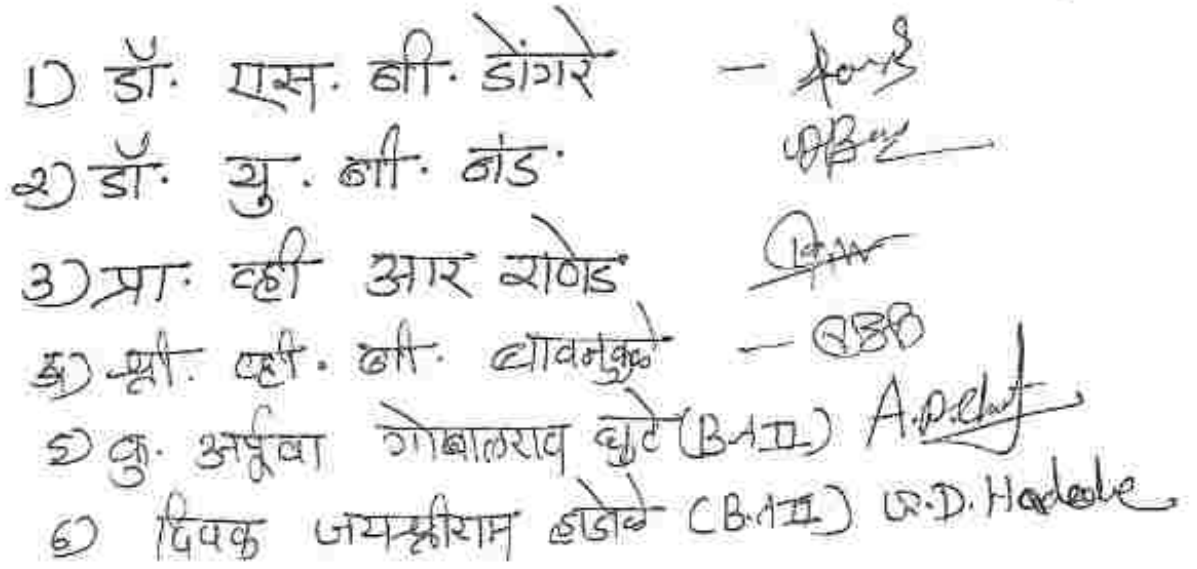 1) डॉ. एस. बी. डोंगरे -
२) डॉ. यु. बी. बंड.
3) प्रा. व्ही आर राठोड
श्री. व्ही. बी. बावनकुळे -
5) कु. अर्पूवा गोपालराव घुटे (B.A II)
6) दिपक जयश्रीराम हाडोळे (B.A II) D. Hadole